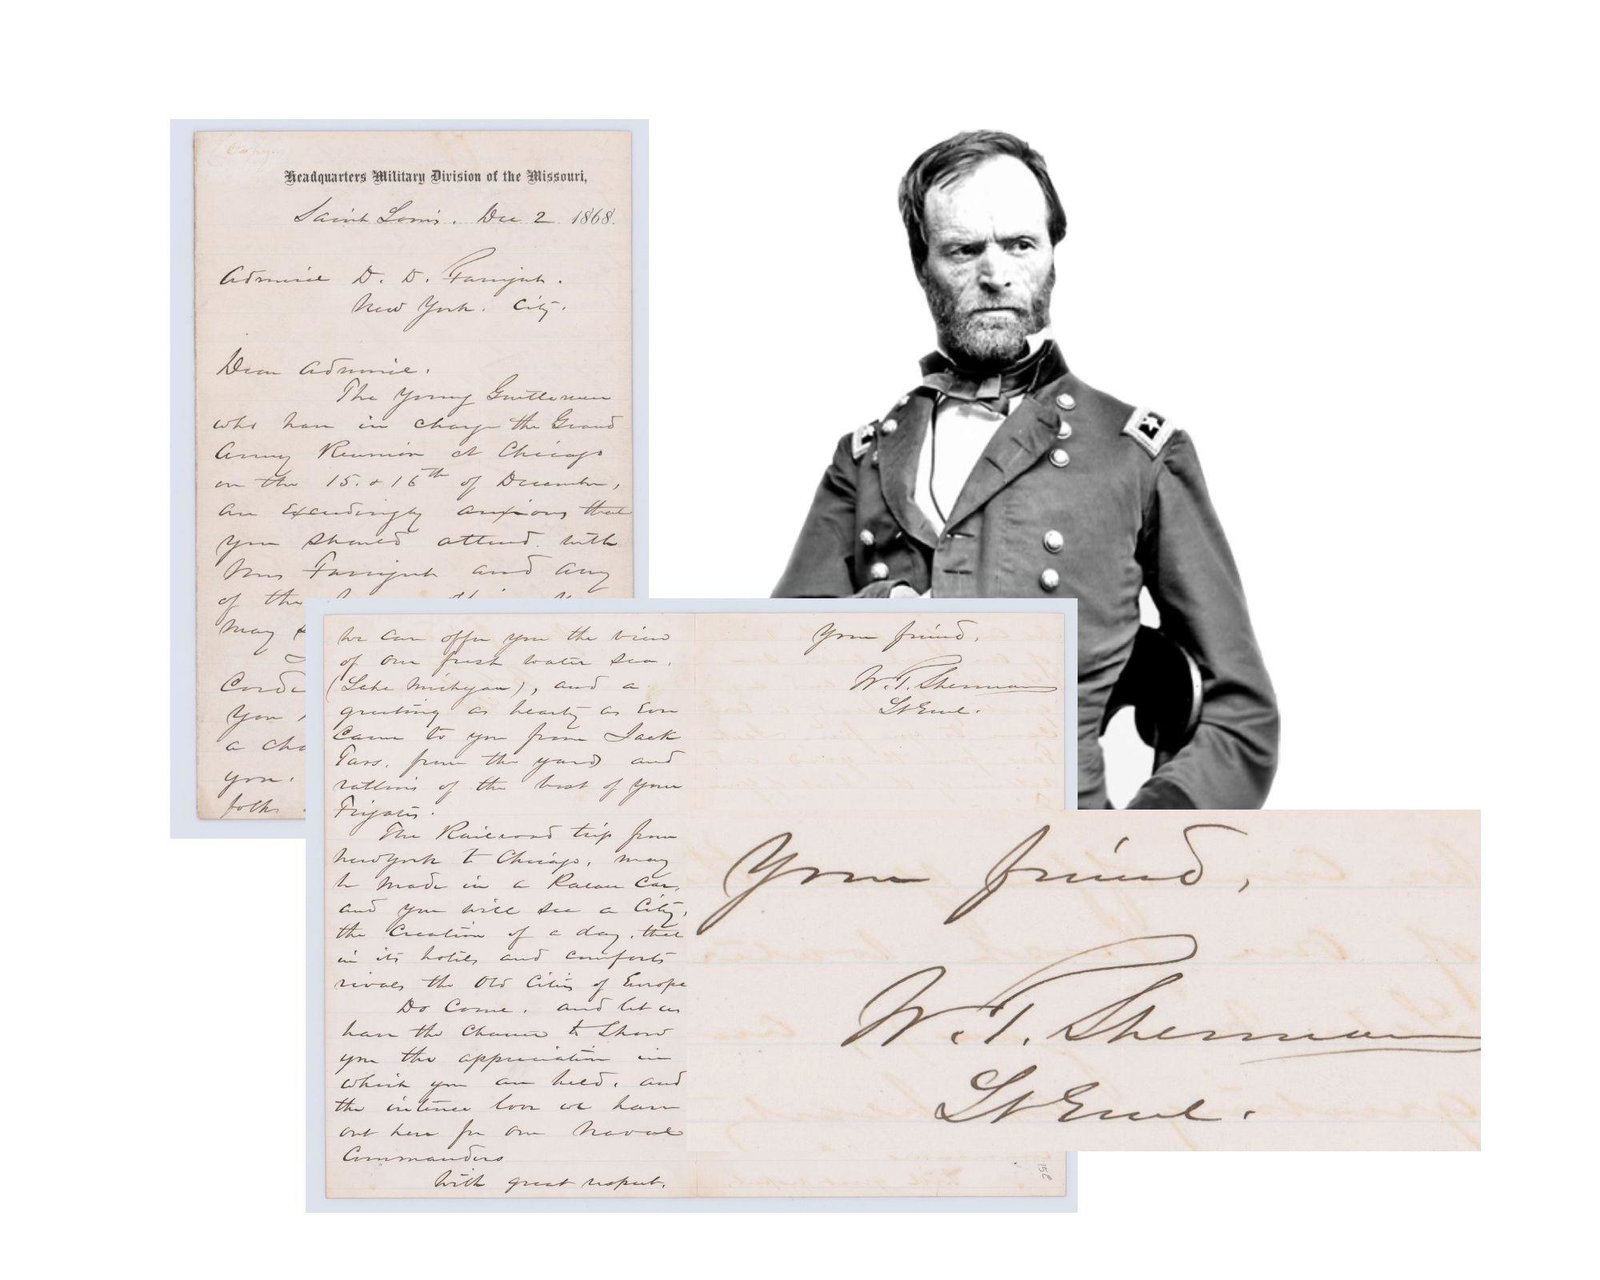 Copy.
Headquarters Military Division of the Missouri,
Saint Louis. Dec 2 1868.
Admiral D. D. Farragut.
New York. City.
Dear Admiral.
The Young Gentlemen
who have in charge the Grand
Army Reunion at Chicago
on the 15. & 16th of December,
are exceedingly anxious that
you should attend with
Mrs Farragut and any
of the
may
Corde
you
a cha
you.
folks
we can offer you the view
of our fresh water sea.
(Lake Michigan), and a
greeting as hearty as Ever
came to you from Jack
Tars. from the yards and
ratlins of the best of your
Frigates.
The Railroad trip from
New York to Chicago, may
be made in a Palace Car,
and you will see a City,
the Creation of a day, that
in its hotels and comforts
rivals the Old Cities of Europe
Do Come. and let us
have the chance to Show
you the appreciation in
which you are held, and
the intense love we have
out here for our Naval
Commanders
With great respect.
Your friend,
W. T. Sherman
Lt Genl.
156
Your friend,
W. T. Sherman
Lt Genl.